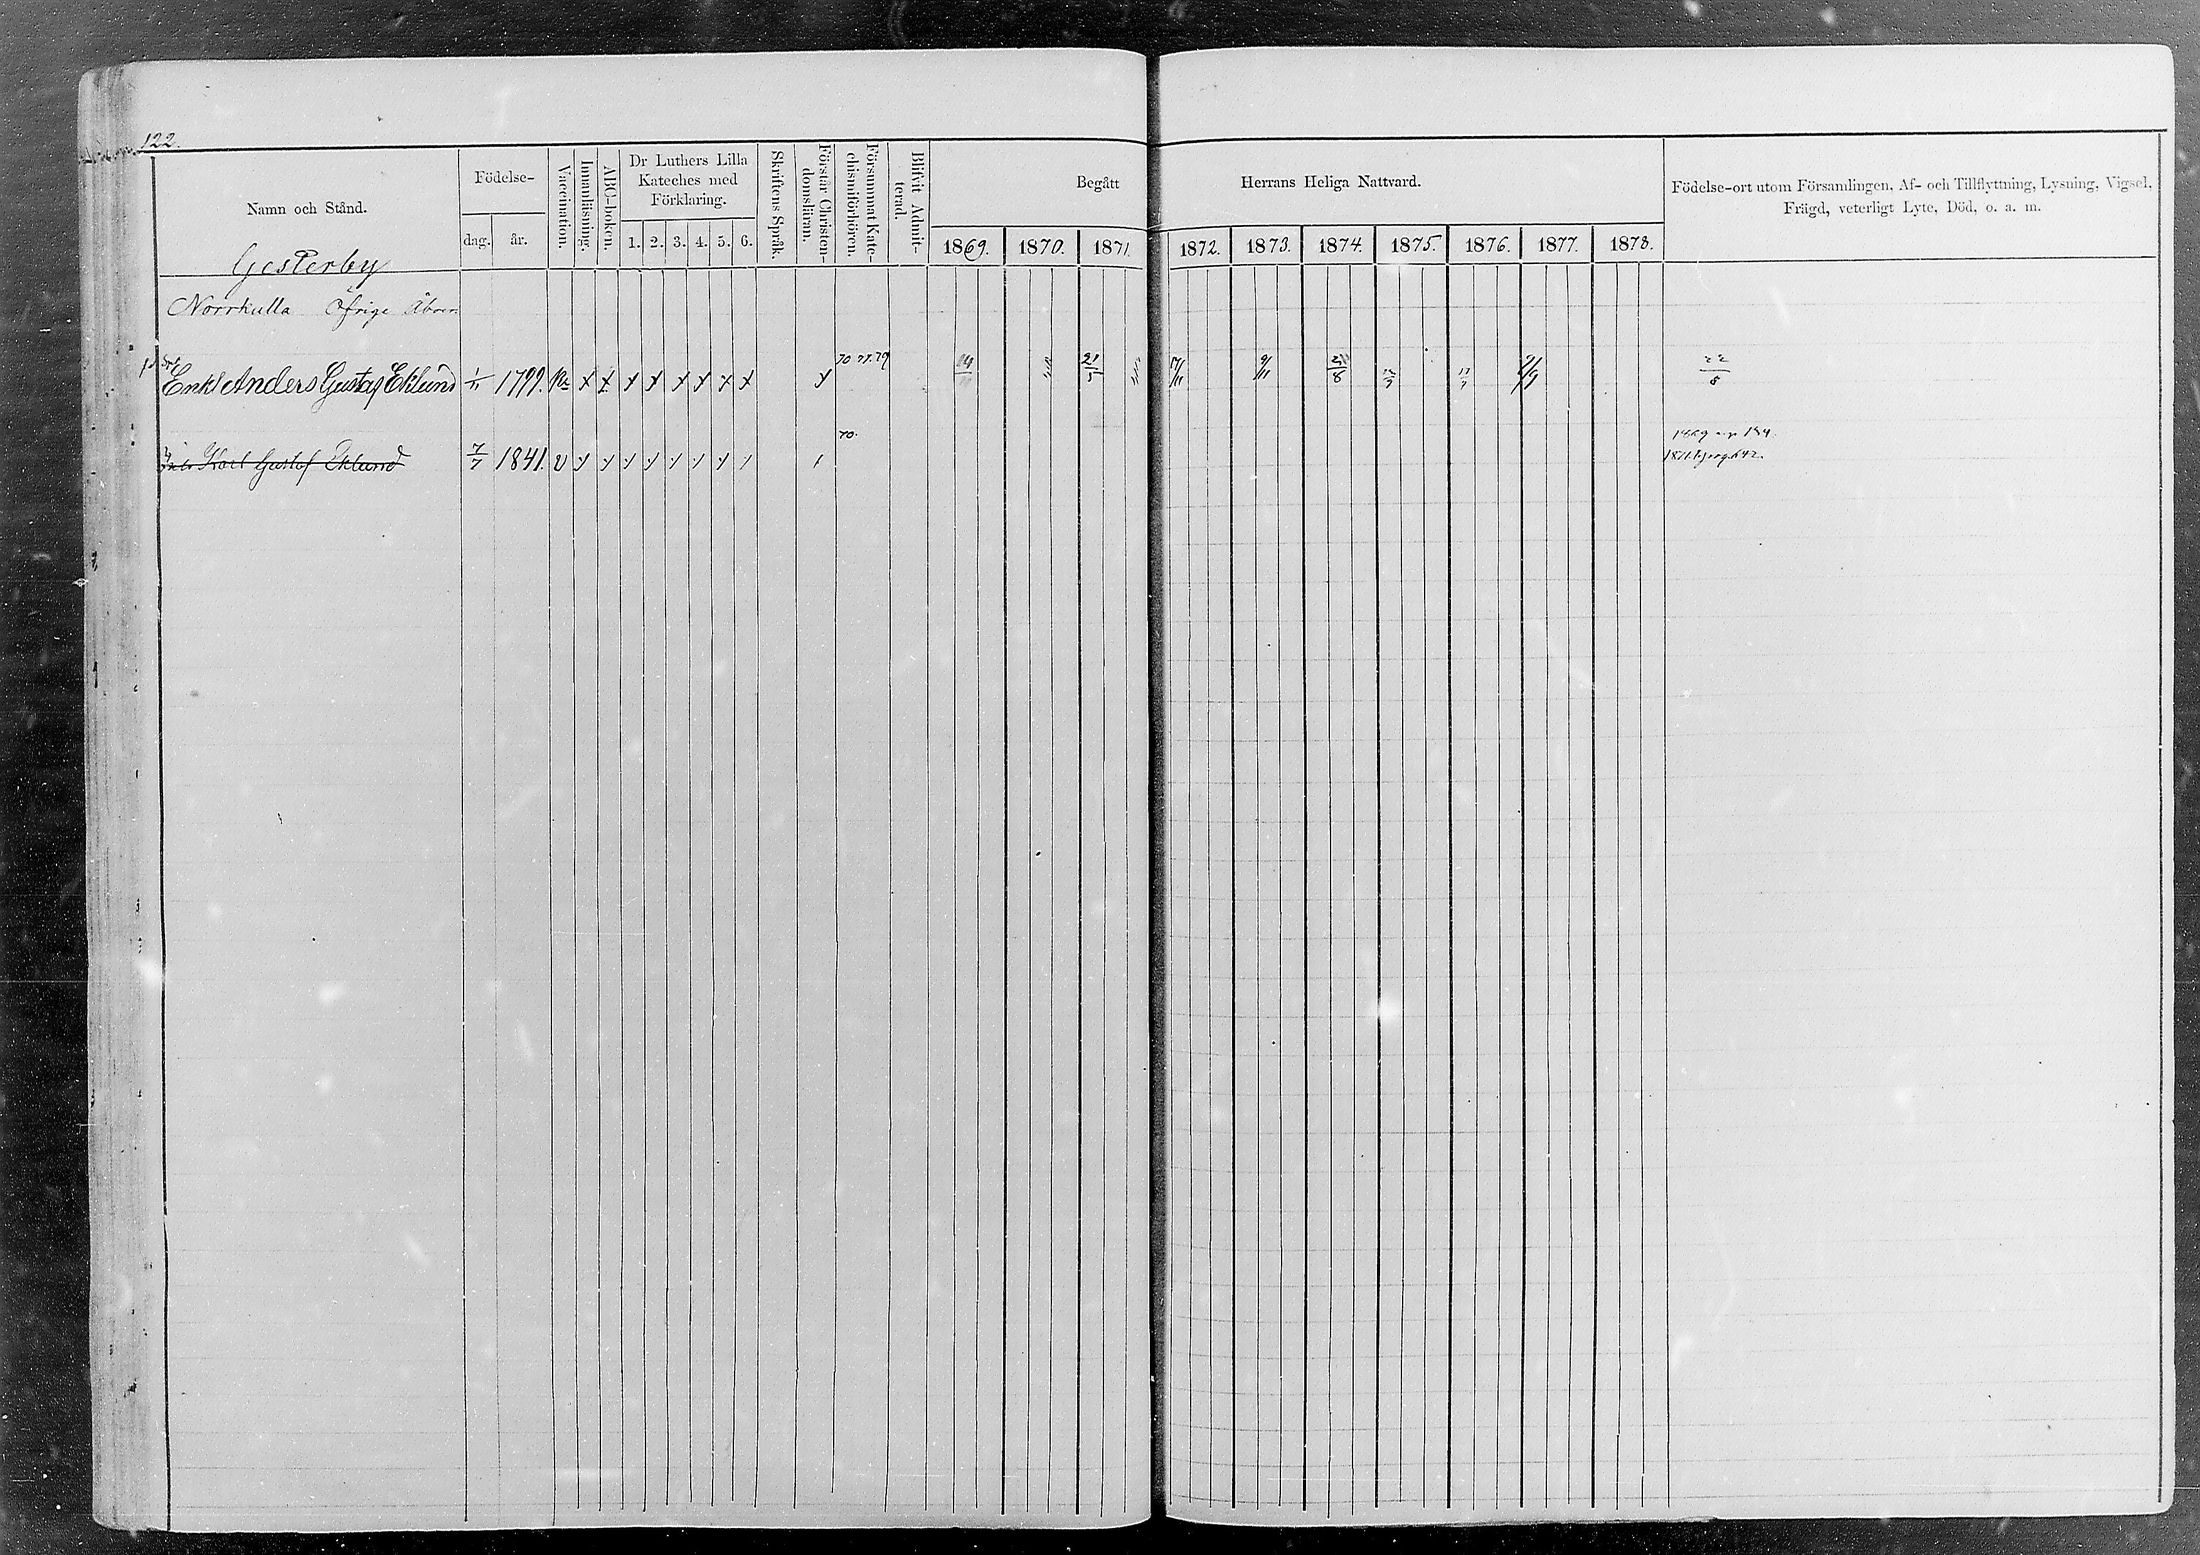 122.
Namn och Stånd.
Födelse-
dag. år.
Vaccination.
Innanläsning.
ABC-boken.
Dr Luthers Lilla
Kateches med
Förklaring.
1. 2. 3. 4. 5. 6.
Skriftens Språk.
Förstår Christen-
domsläran.
Försummat Kate-
chismiförhören.
Blifvit Admit-
terad.
Begått Herrans Heliga Nattvard.
1869. 1870. 1871. 1872. 1873. 1874. 1875. 1876. 1877. 1878.
Födelse-ort utom Församlingen, Af- och Tillflyttning, Lysning, Vigsel,
Frägd, veterligt Lyte, Död, o. a. m.
Gesterby
Norrkulla Öfrige Åboer
70 77. 79
Enkl Anders Gustaf Eklund 1/11 1799. x x x x x x x x x 21/5 17/11 9/11 21/8 2/9 22/8
70.
Karl Gustaf Eklund 7/7 1841. v y y y y y y y
1869
1871